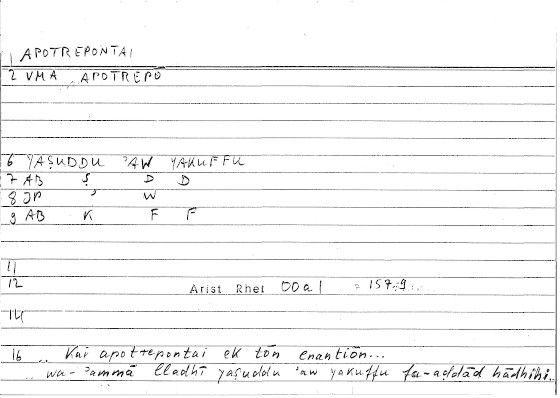 1 APOTREPONTAI
2 VMA APOTREPŌ
6 YAṢUDDU ʾAW YAKUFFU
7 AB Ṣ D D
8 JP ʾ W
9 AB K F F
11
12 Arist Rhet 00a1 = 157,9
14
16 .. Kai apotrepontai ek tōn enantiōn...
.. wa-ʾammā lladhī yaṣuddu ʾaw yakuffu fa-aḍdād hādhihi..